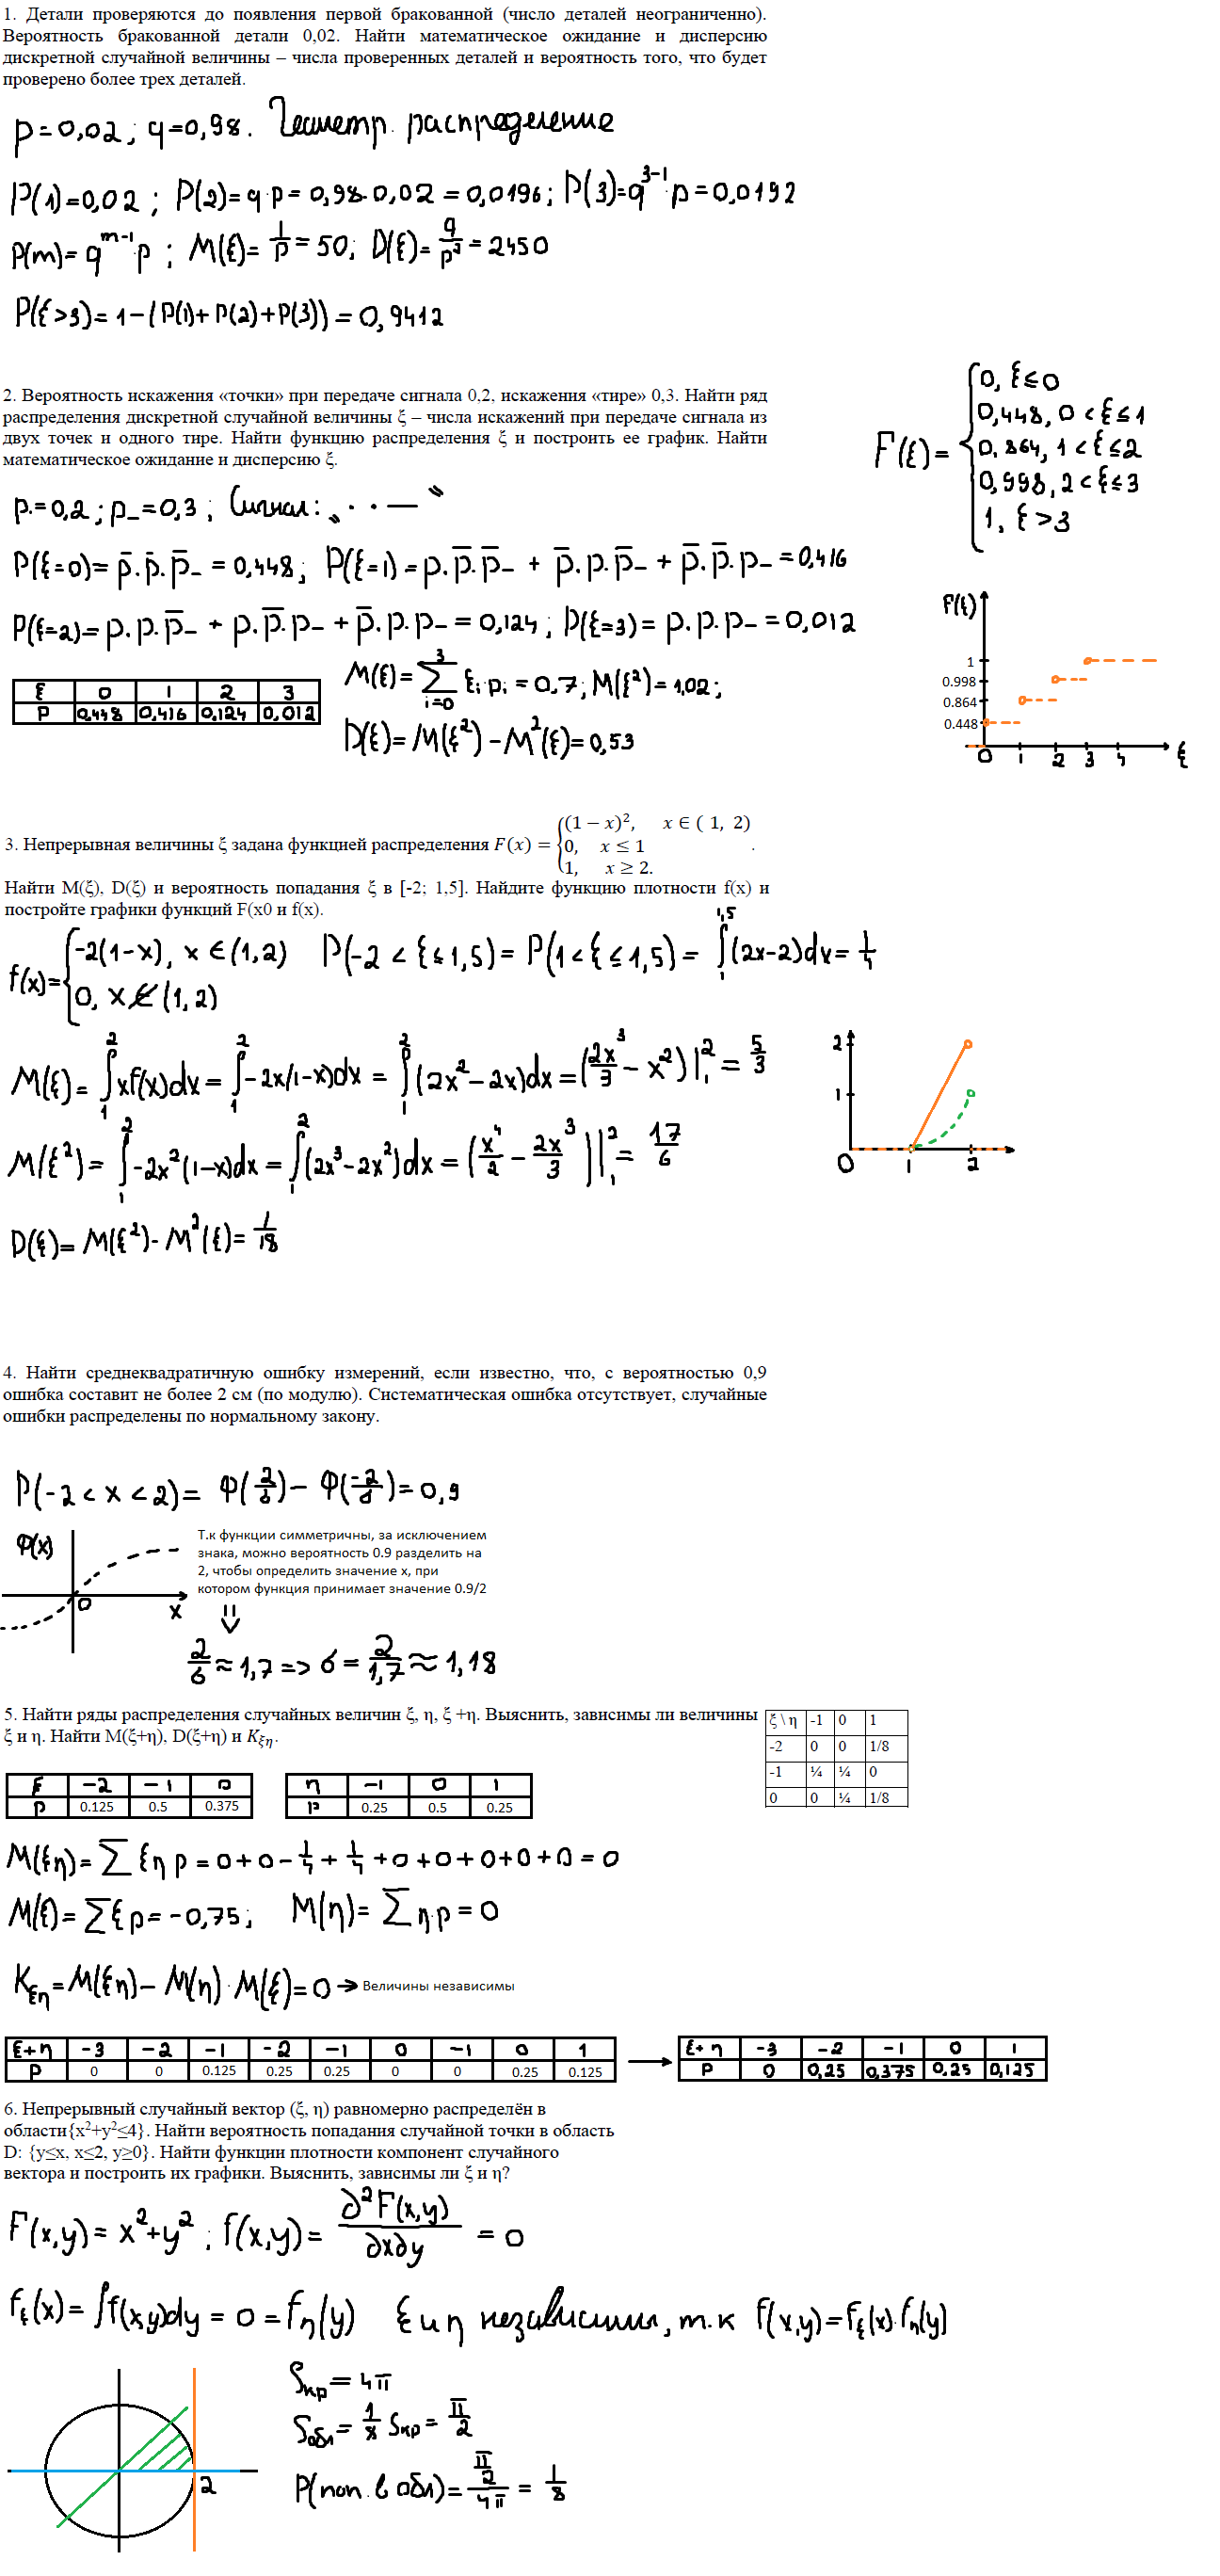 1. Детали проверяются до появления первой бракованной (число деталей неограниченно).
Вероятность бракованной детали 0,02. Найти математическое ожидание и дисперсию
дискретной случайной величины – числа проверенных деталей и вероятность того, что будет
проверено более трех деталей.
p=0,02; q=0,98. Геометр. распределение
P(1)=0,02; P(2)=q·p=0,98·0,02=0,0196; P(3)=q^{3-1}·p=0,0192
P(m)=q^{m-1}·p; M(ξ)=1/p=50; D(ξ)=q/p²=2450
P(ξ>3)=1-(P(1)+P(2)+P(3))=0,9412
2. Вероятность искажения «точки» при передаче сигнала 0,2, искажения «тире» 0,3. Найти ряд
распределения дискретной случайной величины ξ – числа искажений при передаче сигнала из
двух точек и одного тире. Найти функцию распределения ξ и построить ее график. Найти
математическое ожидание и дисперсию ξ.
F(ξ)=
0, ξ≤0
0,448, 0<ξ≤1
0.864, 1<ξ≤2
0,998, 2<ξ≤3
1, ξ>3
p.=0,2; p_=0,3; Сигнал: „· · —”
P(ξ=0)=p̄.p̄.p̄_=0,448; P(ξ=1)=p.p̄.p̄_+p̄.p.p̄_+p̄.p̄.p_=0,416
P(ξ=2)=p.p.p̄_+p.p̄.p_+p̄.p.p_=0,124; P(ξ=3)=p.p.p_=0,012
ξ 0 1 2 3
P 0,448 0,416 0,124 0,012
M(ξ)=∑_{i=0}^{3} ξi·pi=0,7; M(ξ²)=1,02;
D(ξ)=M(ξ²)-M²(ξ)=0,53
F(ξ)
1
0.998
0.864
0.448
0 1 2 3 4 ξ
3. Непрерывная величины ξ задана функцией распределения F(x) =
(1 − x)², x ∈ ( 1, 2)
0, x ≤ 1
1, x ≥ 2.
.
Найти M(ξ), D(ξ) и вероятность попадания ξ в [-2; 1,5]. Найдите функцию плотности f(x) и
постройте графики функций F(x0 и f(x).
f(x)=
-2(1-x), x∈(1,2)
0, x∉(1,2)
P(-2<ξ≤1,5)=P(1<ξ≤1,5)=∫_1^{1,5}(2x-2)dx=1/4
M(ξ)=∫_1^2 xf(x)dx=∫_1^2 -2x(1-x)dx=∫_1^2(2x²-2x)dx=(2x³/3-x²)|_1^2=5/3
M(ξ²)=∫_1^2 -2x²(1-x)dx=∫_1^2(2x³-2x²)dx=(x⁴/2-2x³/3)|_1^2=17/6
D(ξ)=M(ξ²)-M²(ξ)=1/18
2
1
0 1 2
4. Найти среднеквадратичную ошибку измерений, если известно, что, с вероятностью 0,9
ошибка составит не более 2 см (по модулю). Систематическая ошибка отсутствует, случайные
ошибки распределены по нормальному закону.
P(-2<x<2)=Φ(2/σ)-Φ(-2/σ)=0,9
Φ(x)
0 x
Т.к функции симметричны, за исключением
знака, можно вероятность 0.9 разделить на
2, чтобы определить значение x, при
котором функция принимает значение 0.9/2
2/σ≈1,7=>σ=2/1,7≈1,18
5. Найти ряды распределения случайных величин ξ, η, ξ +η. Выяснить, зависимы ли величины
ξ и η. Найти M(ξ+η), D(ξ+η) и Kξη.
ξ \ η -1 0 1
-2 0 0 1/8
-1 ¼ ¼ 0
0 0 ¼ 1/8
ξ -2 -1 0
P 0.125 0.5 0.375
η -1 0 1
P 0.25 0.5 0.25
M(ξη)=∑ξηp=0+0-1/4+1/4+0+0+0+0+0=0
M(ξ)=∑ξp=-0,75; M(η)=∑η·p=0
Kξη=M(ξη)-M(η)·M(ξ)=0→ Величины независимы
ξ+η -3 -2 -1 -2 -1 0 -1 0 1
P 0 0 0.125 0.25 0.25 0 0 0.25 0.125
ξ+η -3 -2 -1 0 1
P 0 0,25 0,375 0.25 0,125
6. Непрерывный случайный вектор (ξ, η) равномерно распределён в
области{x²+y²≤4}. Найти вероятность попадания случайной точки в область
D: {y≤x, x≤2, y≥0}. Найти функции плотности компонент случайного
вектора и построить их графики. Выяснить, зависимы ли ξ и η?
F(x,y)=x²+y²; f(x,y)=∂²F(x,y)/∂x∂y=0
fξ(x)=∫f(x,y)dy=0=fη(y) ξ и η независимы, т.к f(x,y)=fξ(x)·fη(y)
Sкр=4π
Sобл=1/8 Sкр=π/2
P(поп. в обл)=(π/2)/4π=1/8
2